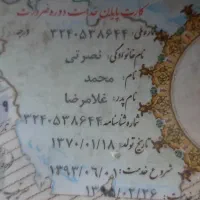 کارت پایان خدمت دوره ضرورت
کد ملی: ۳۲۴۰۵۳۸۶۴۴
نام خانوادگی: نصرتی
نام: محمد
نام پدر: غلامرضا
شماره شناسنامه: ۳۲۴۰۵۳۸۶۴۴
تاریخ تولد: ۱۳۷۰/۰۱/۱۸
شروع خدمت: ۱۳۹۳/۰۶/۰۱
۱۳۹۵/۰۲/۲۶